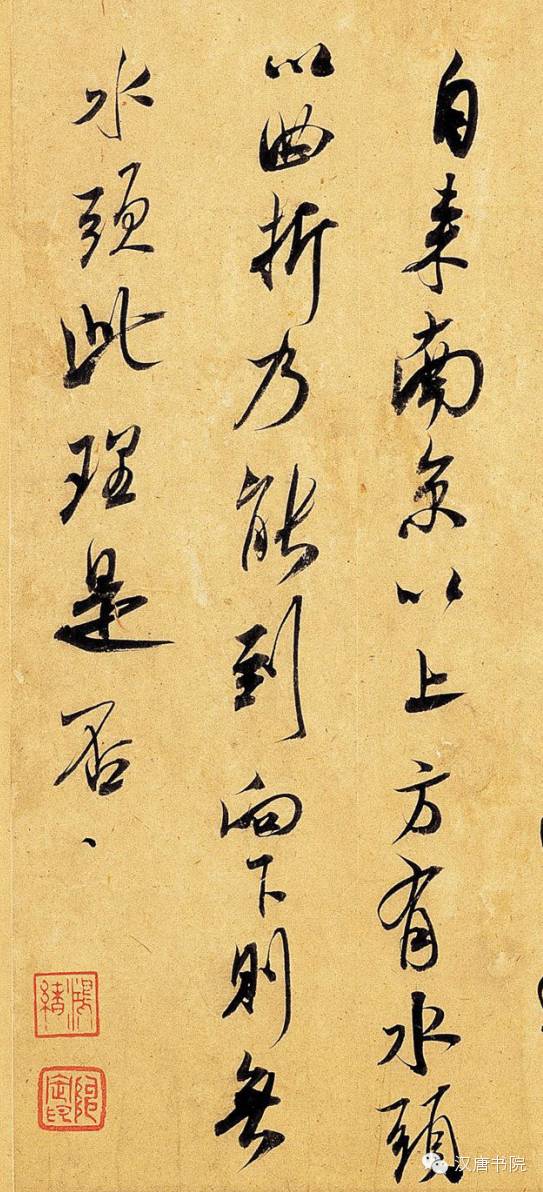 自来南京以上方有水頭
以曲折乃能到向下則無
水頭此理是否、
汉唐书院